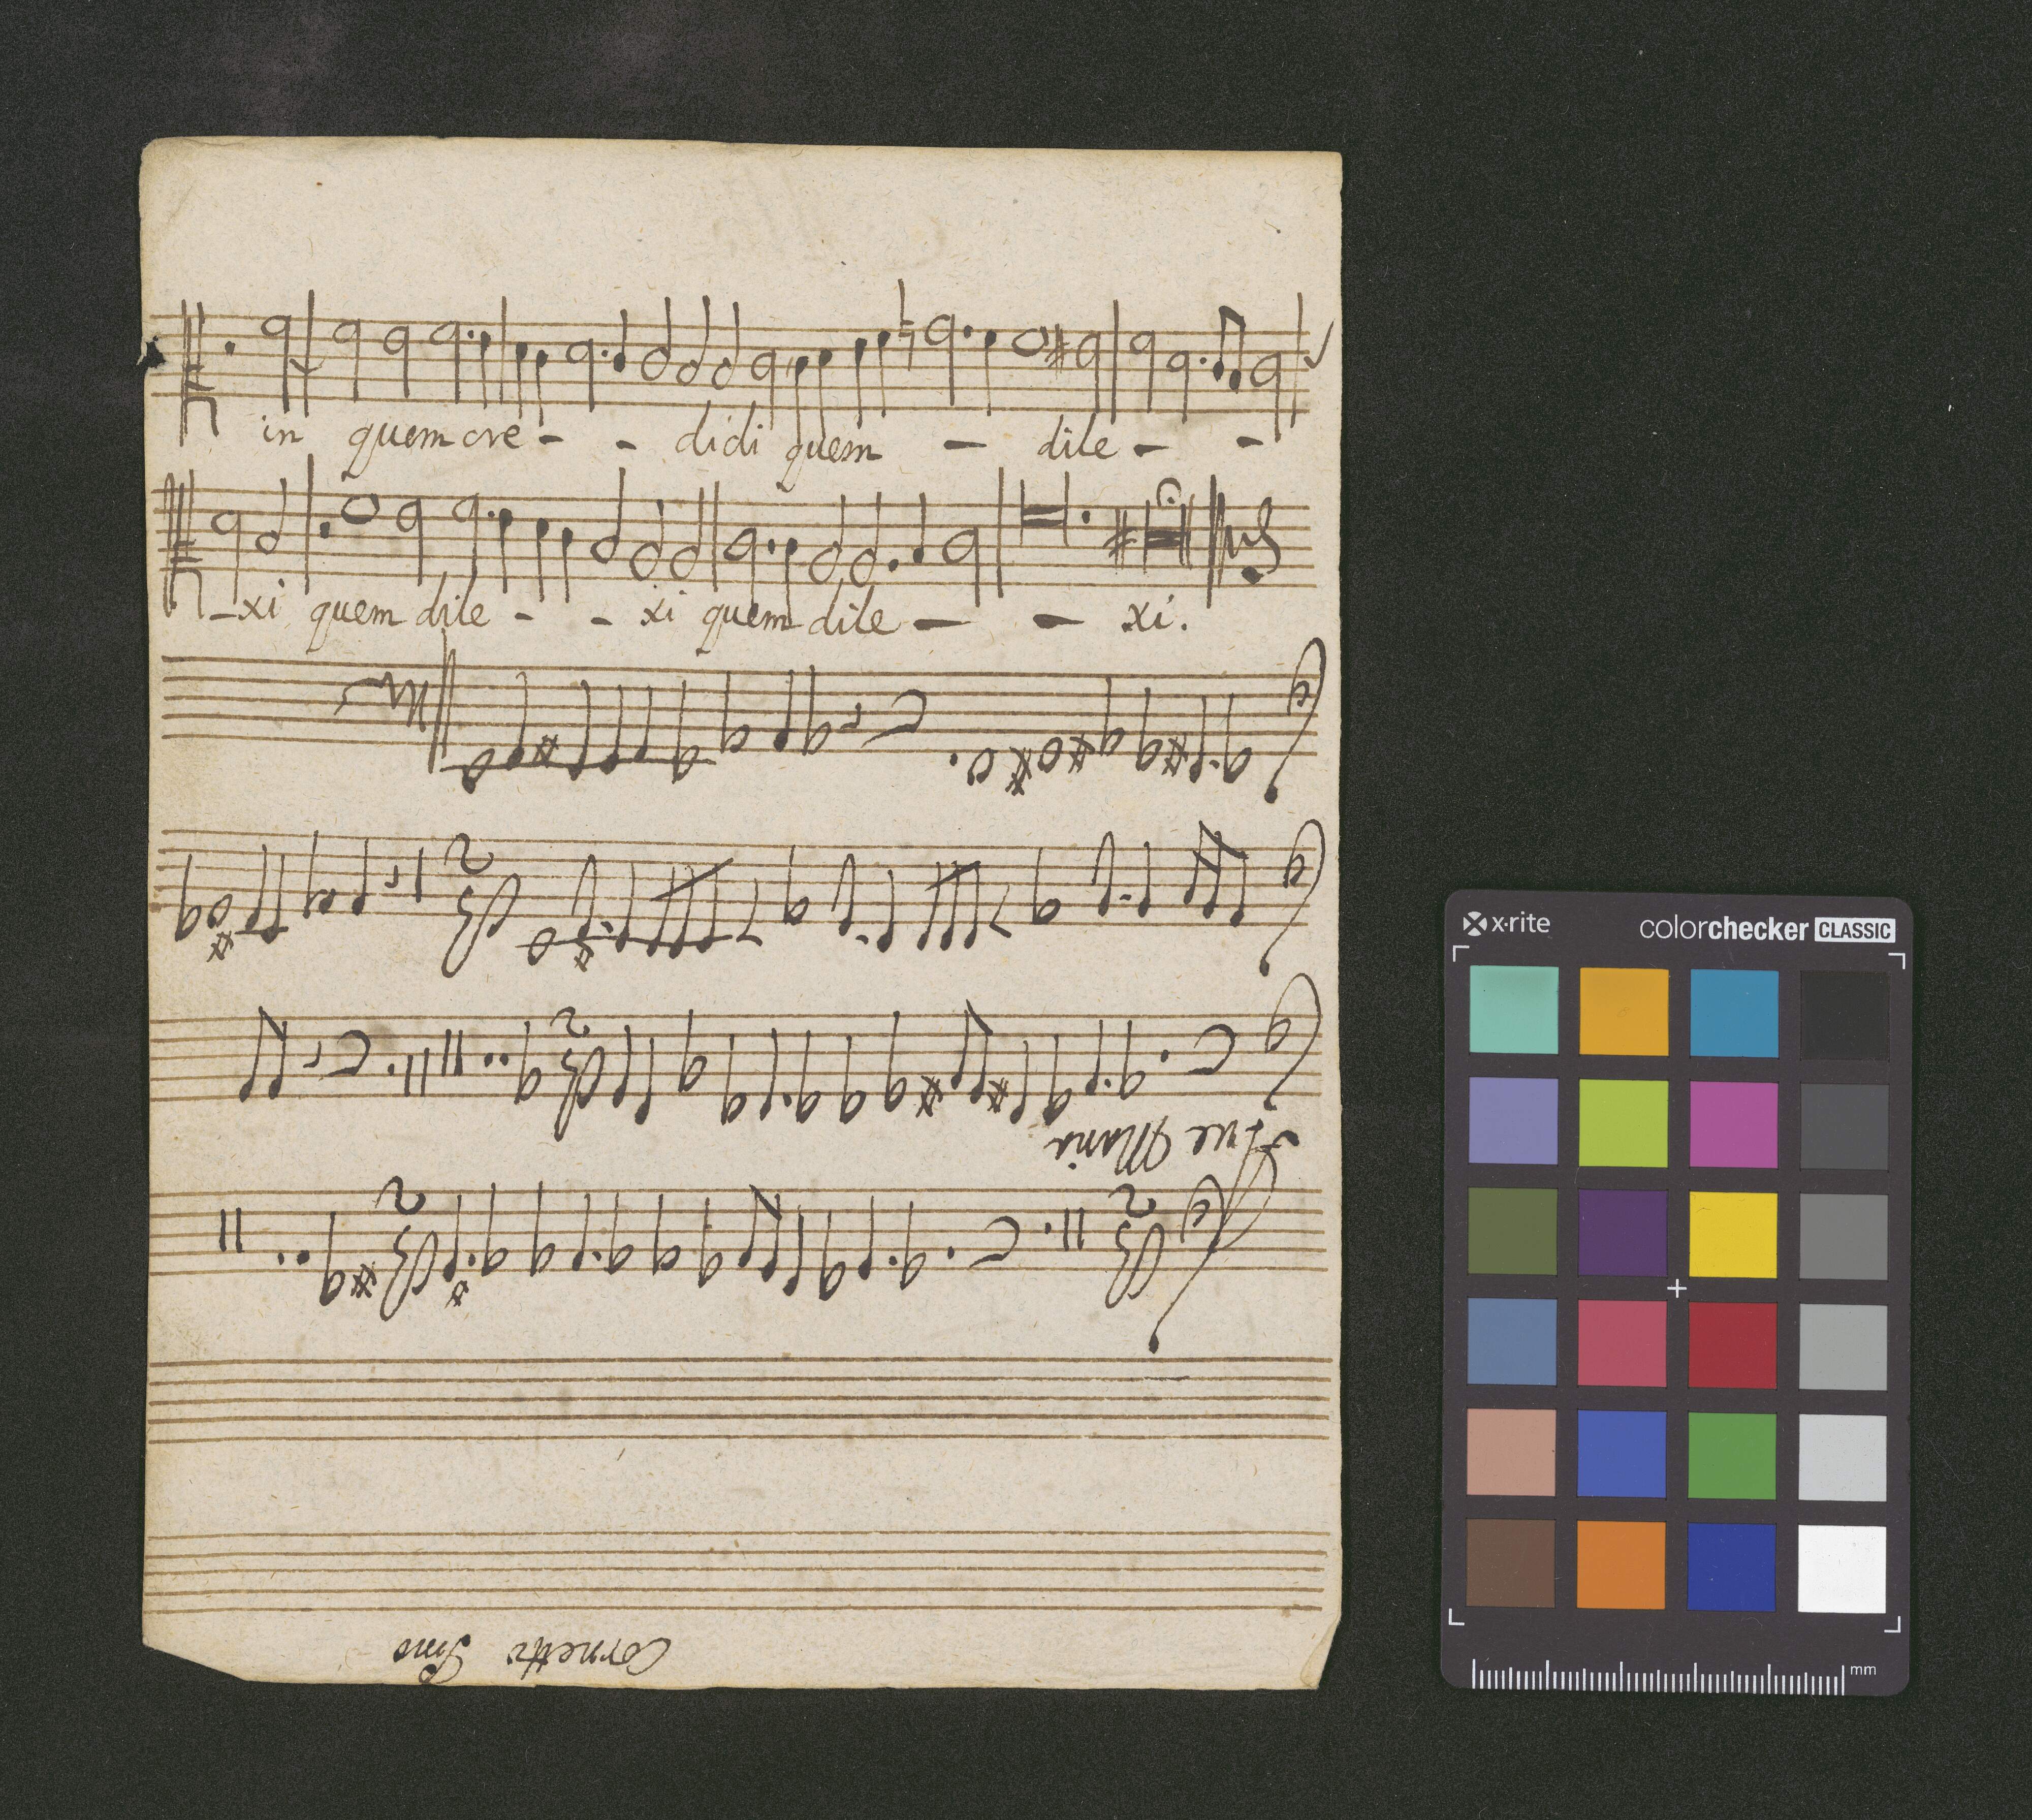 in quem cre - - didi quem - dile - -
- xi quem dile - - xi quem dile - - xi.
Ave Maria
Cornetti Pmo
x-rite colorchecker CLASSIC
mm